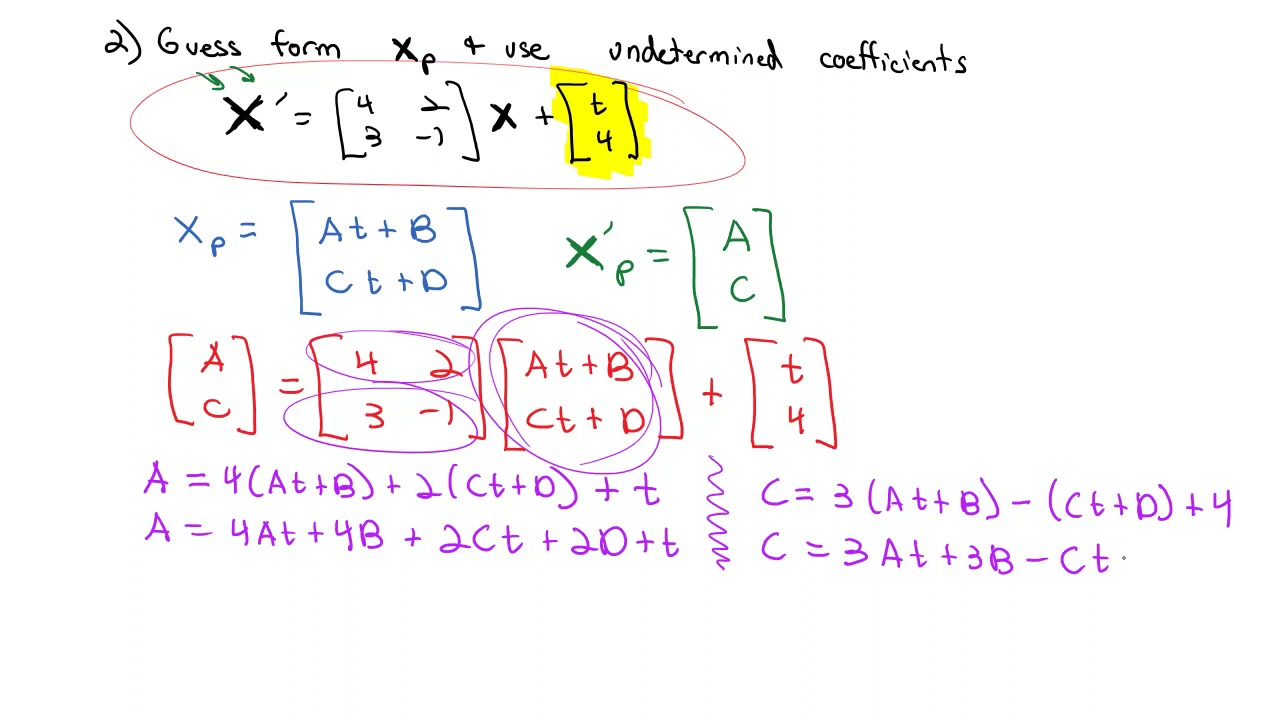 2) Guess form Xp + use undetermined coefficients
X' = [4 2; 3 -1] X + [t; 4]
Xp = [At + B; Ct + D]   X'p = [A; C]
[A; C] = [4 2; 3 -1] [At + B; Ct + D] + [t; 4]
A = 4(At+B) + 2(Ct+D) + t
A = 4At + 4B + 2Ct + 2D + t
C = 3(At+B) - (Ct+D) + 4
C = 3At + 3B - Ct